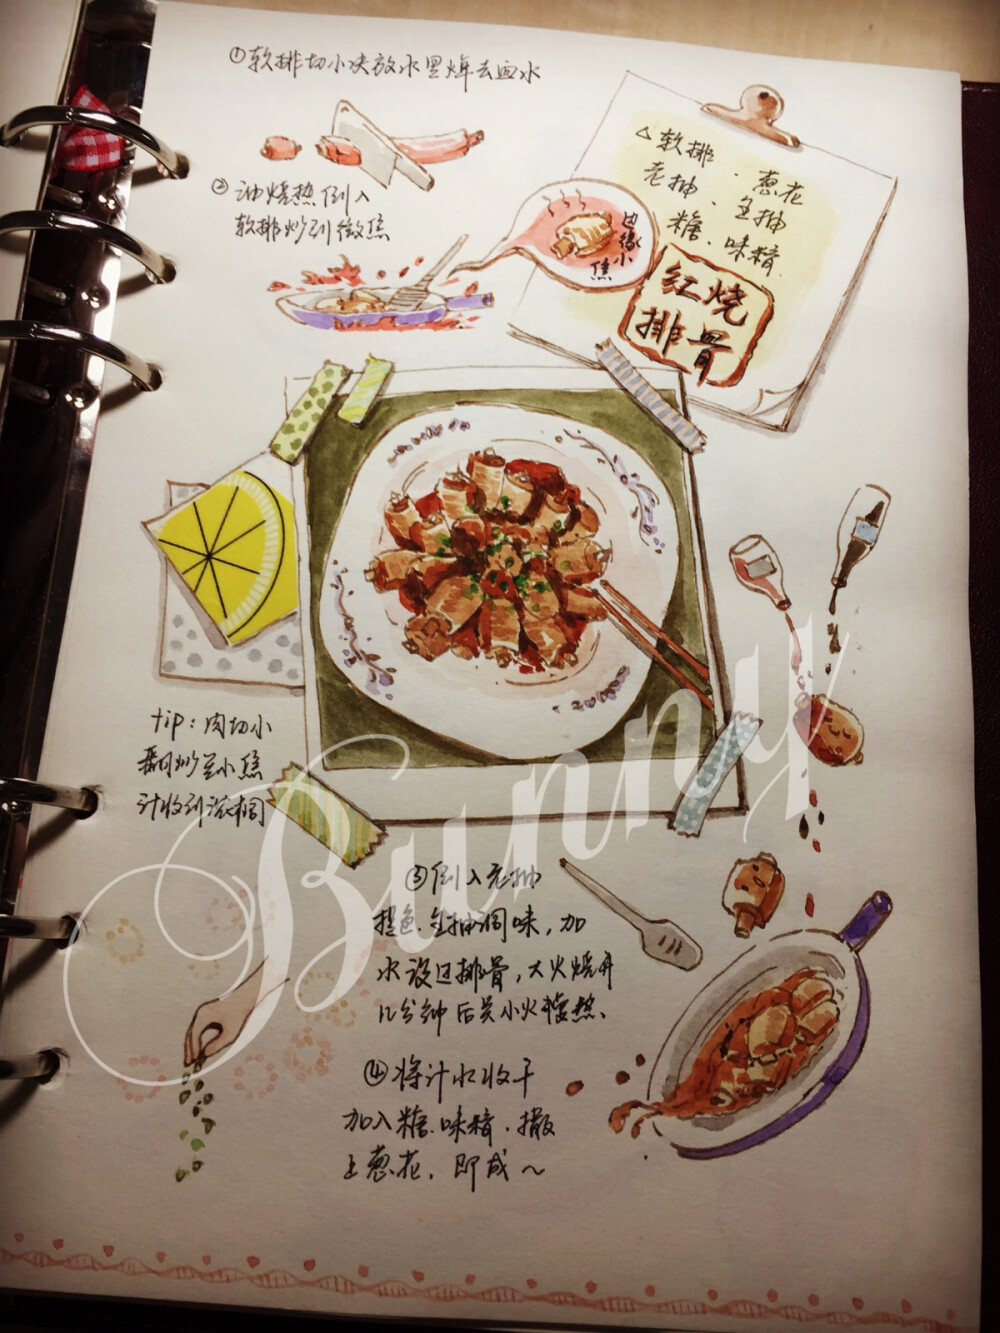 ①软排切小块放水里焯去血水
②油烧热倒入
软排炒到微焦
△软排
老抽
糖、味精
· 葱花
、生抽
边缘小焦
红烧
排骨
tip：肉切小
翻炒至小焦
汁收到浓稠
③倒入老抽
提色、生抽调味，加
水没过排骨，大火烧开
12分钟后关小火
④将汁水收干
加入糖、味精、撒
上葱花，即成～
Bunny